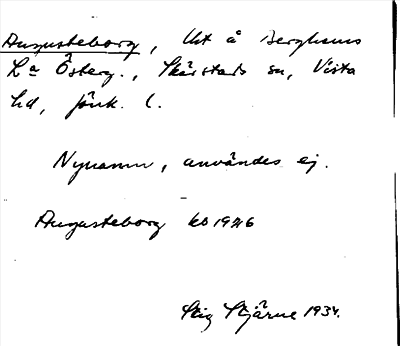 Augusteborg, Uzt å Berghems
La Österg., Skärstads sn, Vista
hd, Jönk. l.
Nynamn, användes ej.
Augusteborg kb 1926
Stig Stjärne 1934.